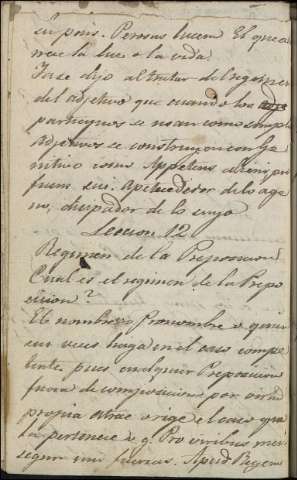 su pais. Perosus lucem El que a
rrece la luz o la vida.
Ya se dijo al tratar del regimen
del adjetivo que cuando los
participios se usan como simples
adjetivos se construyen con Ge
nitivo como Appetens alieni pro
fusus sui. Apetecedor de lo age
no, disipador de lo suyo.
Leccion 12
Regimen de la Preposicion
Cual es el regimen de la Prepo
sicion?
El nombre o Pronombre o quien
sus veces haga en el caso compe
tente, pues cualquier Preposicion
fuera de composicion por virtud
propia atrae o rige el caso que
la pertenece v. g. Pro viribus meis
segun mis fuerzas. Apud Regem